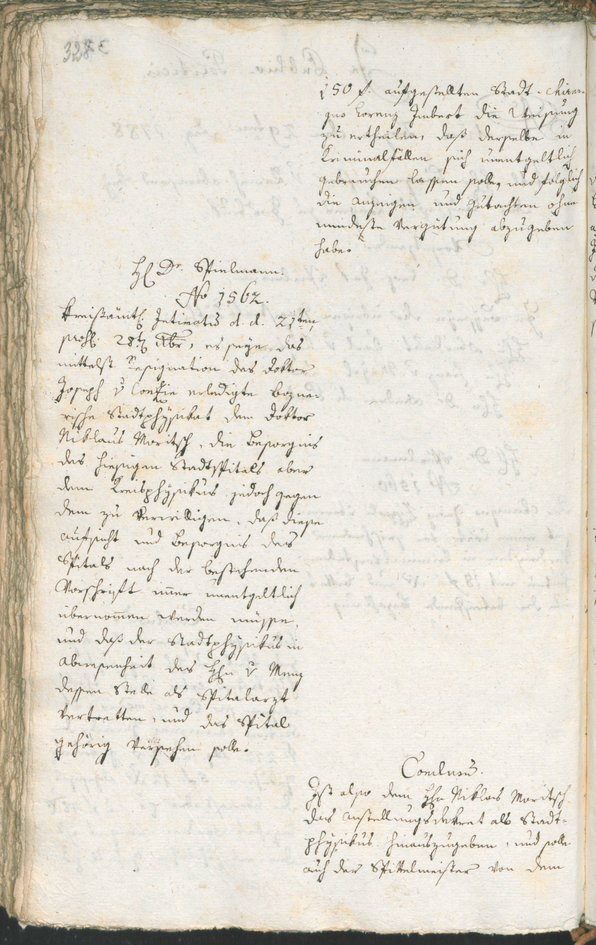 328
150 f. aufgestellten Stadt-Chirur-
guo Lorenz Imbert die Weisung
zu ertheilen, daß derselbe in
Kriminalfällen sich unentgeltlich
gebrauchen lassen solle, und folglich
die Anzeigen und Gutachten ohne
mindeste Vergütung abzugeben
habe.
H Dr. Spielmann
No 1562.
Kreisämtl. Intimatum d. d. 21ten
praes. 28t 8br, es seye das
mittelst Resignation des Doktor
Joseph v erledigte Bozne-
rische Stadtphysikat dem Doktor
Niklaus Moritsch, die Besorgnis
des hiesigen Stadtspitals aber
dem Kreisphysikus jedoch gegen
dem zu verwilligen, daß diese
Aufsicht und Besorgnis des
Spitals nach der bestehenden
Vorschrift immer unentgeltlich
übernommen werden müsse,
und daß der Stadtphysikus in
Abwesenheit des Hn v Menz
dessen Stelle als Spitalarzt
vertretten, und das Spital
gehörig versehen solle.
Conclusum.
Ist also dem Hn Niklas Moritsch
das Anstellungsdekret als Stadt-
physikus hinauszugeben, und solle
auch der Spittelmeister von dem